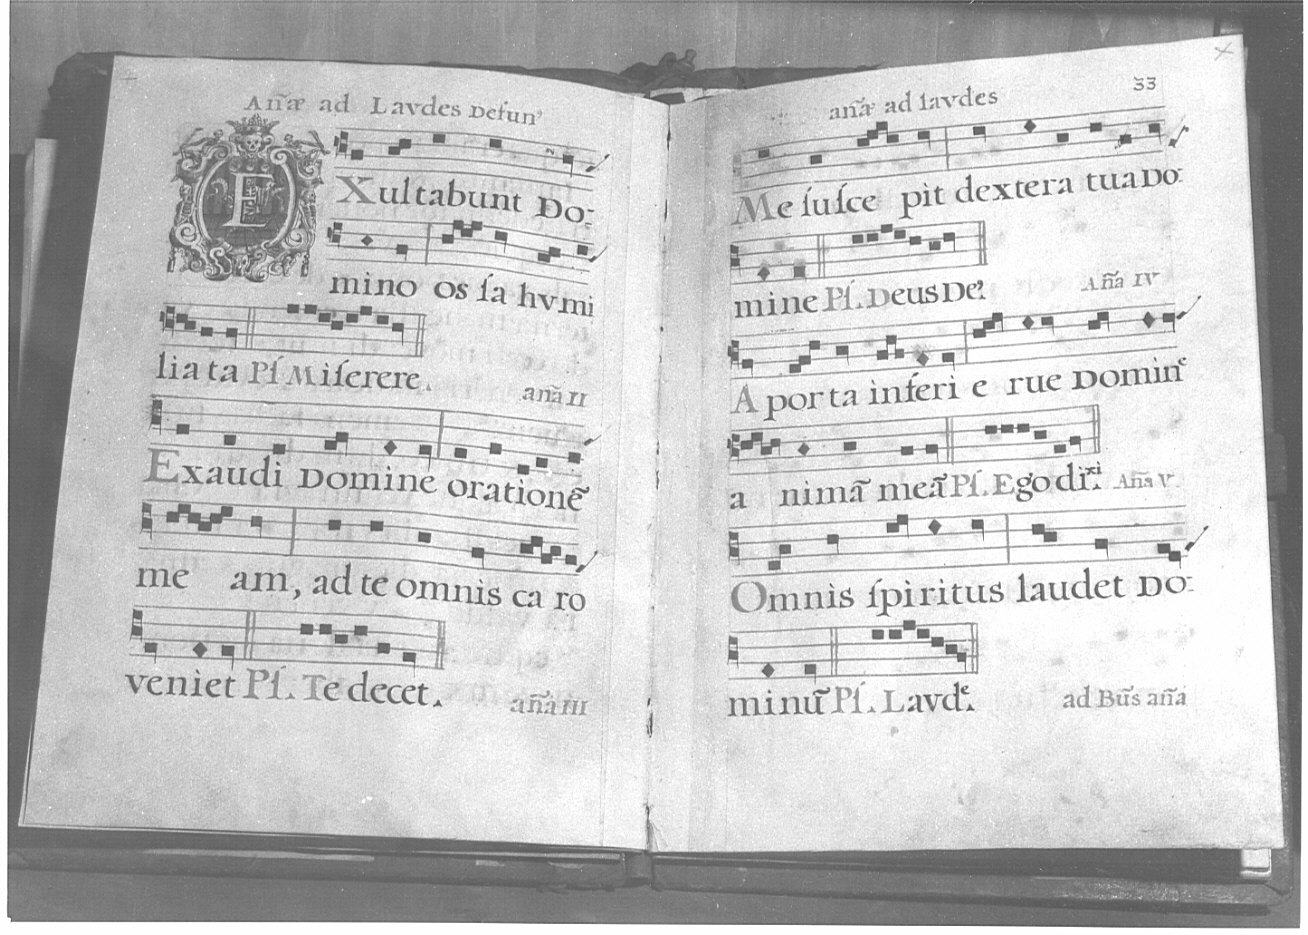 Añæ ad Lavdes Defun⁹
EXultabunt Do-
mino os ſa hvmi
lia ta Pſ Miſerere.
aña II
Exaudi Domine orationẽ
me am, ad te omnis ca ro
veniet Pſ. Te decet.
aña III
33
añæ ad lavdes
Me ſuſce pit dextera tua Do-
mine Pſ. Deus De9
Aña IV
A porta inferi e rue Dominᵉ
a nimã meã Pſ. Ego dixi. Aña V
Omnis ſpiritus laudet Do-
minũ Pſ. Lavdᵉ.
ad Bũs aña